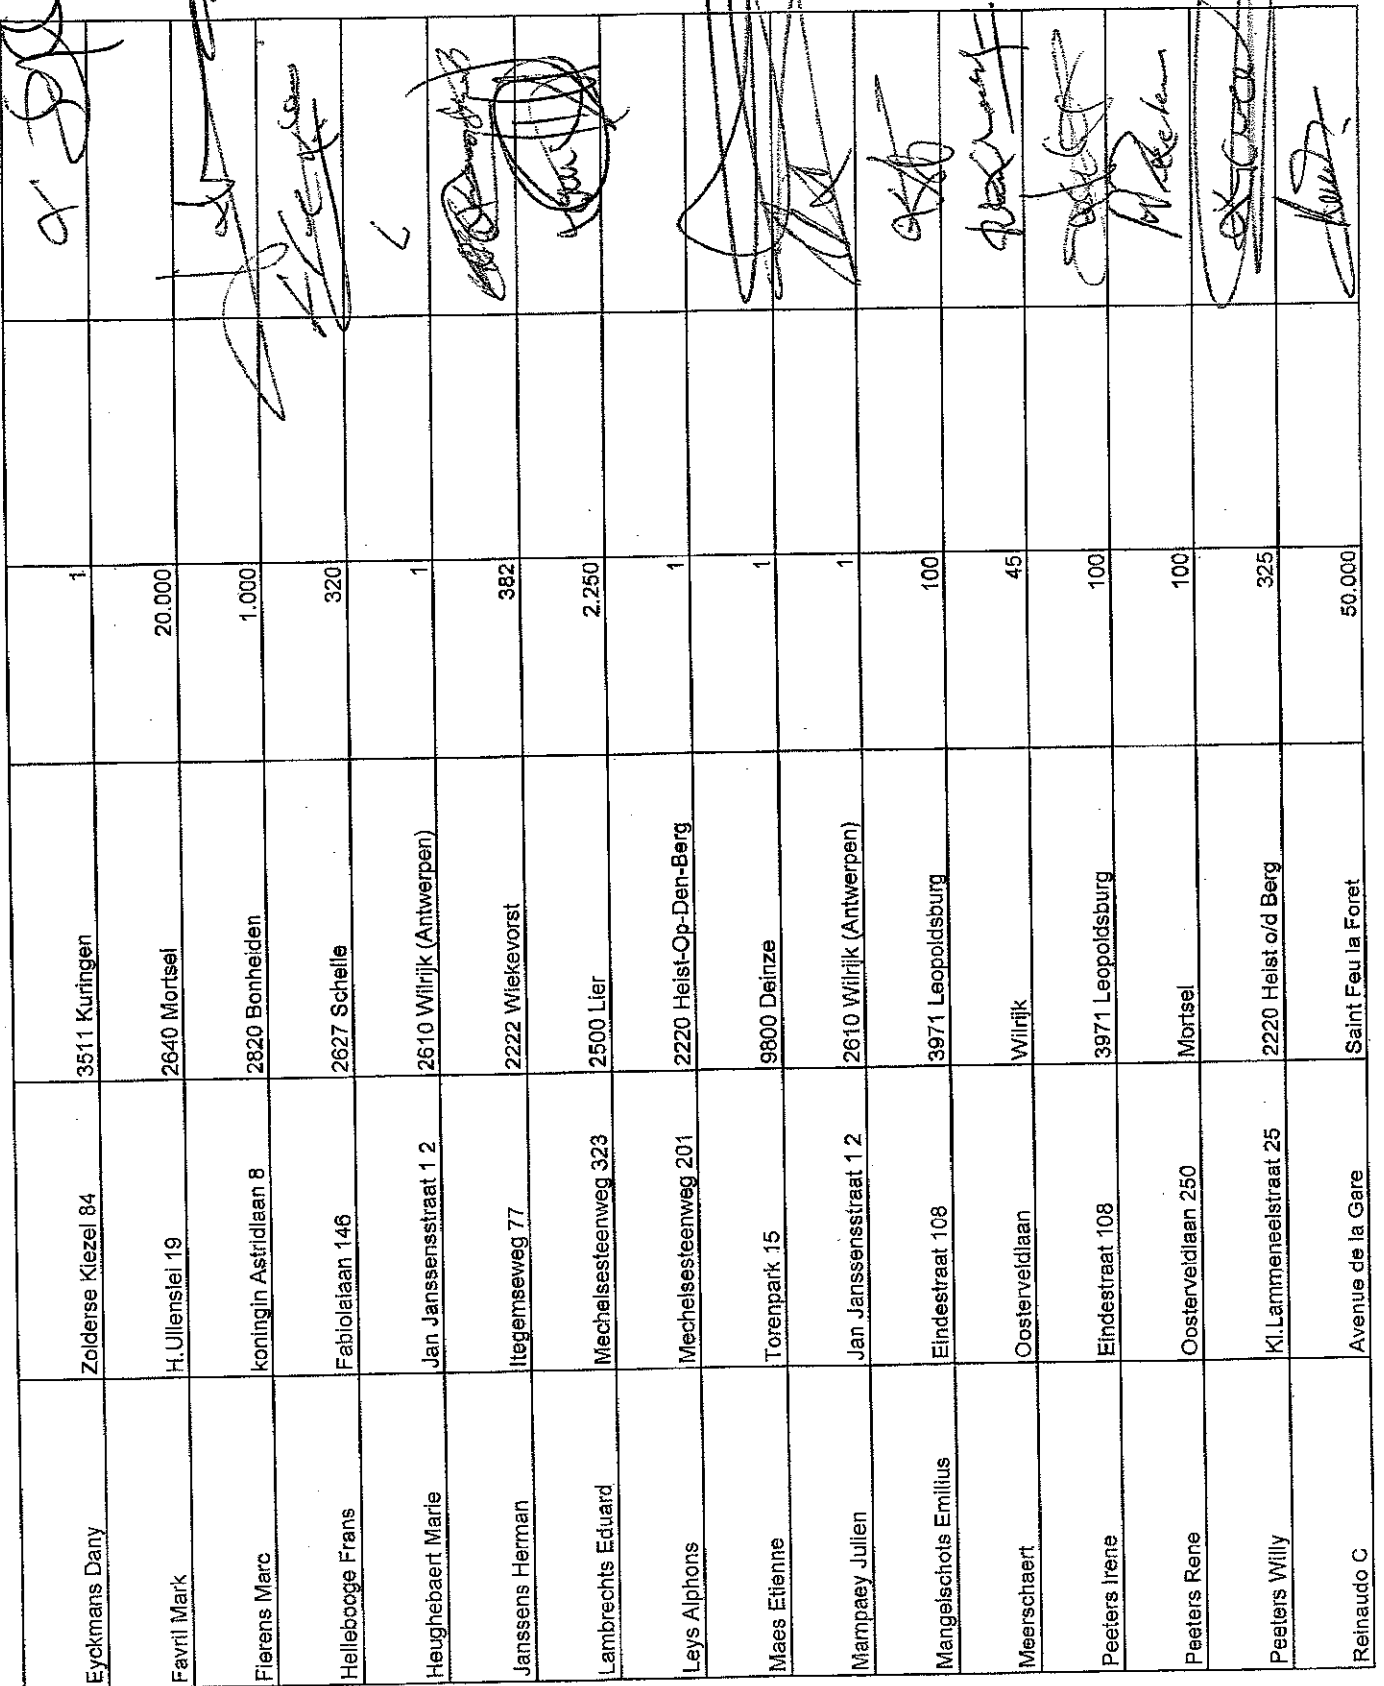 Eyckmans Dany Zolderse Kiezel 84 3511 Kuringen 1
Favril Mark H.Ullenslei 19 2640 Mortsel 20.000
Fierens Marc koningin Astridlaan 8 2820 Bonheiden 1.000
Hellebooge Frans Fabiolalaan 146 2627 Schelle 320
Heughebaert Marie Jan Janssensstraat 1 2 2610 Wilrijk (Antwerpen) 1
Janssens Herman Itegemseweg 77 2222 Wiekevorst 382
Lambrechts Eduard Mechelsesteenweg 323 2500 Lier 2.250
Leys Alphons Mechelsesteenweg 201 2220 Heist-Op-Den-Berg 1
Maes Etienne Torenpark 15 9800 Deinze 1
Mampaey Julien Jan Janssensstraat 1 2 2610 Wilrijk (Antwerpen) 1
Mangelschots Emilius Eindestraat 108 3971 Leopoldsburg 100
Meerschaert Oosterveldlaan Wilrijk 45
Peeters Irene Eindestraat 108 3971 Leopoldsburg 100
Peeters Rene Oosterveldlaan 250 Mortsel 100
Peeters Willy Kl.Lammeneelstraat 25 2220 Heist o/d Berg 325
Reinaudo C Avenue de la Gare Saint Feu la Foret 50.000